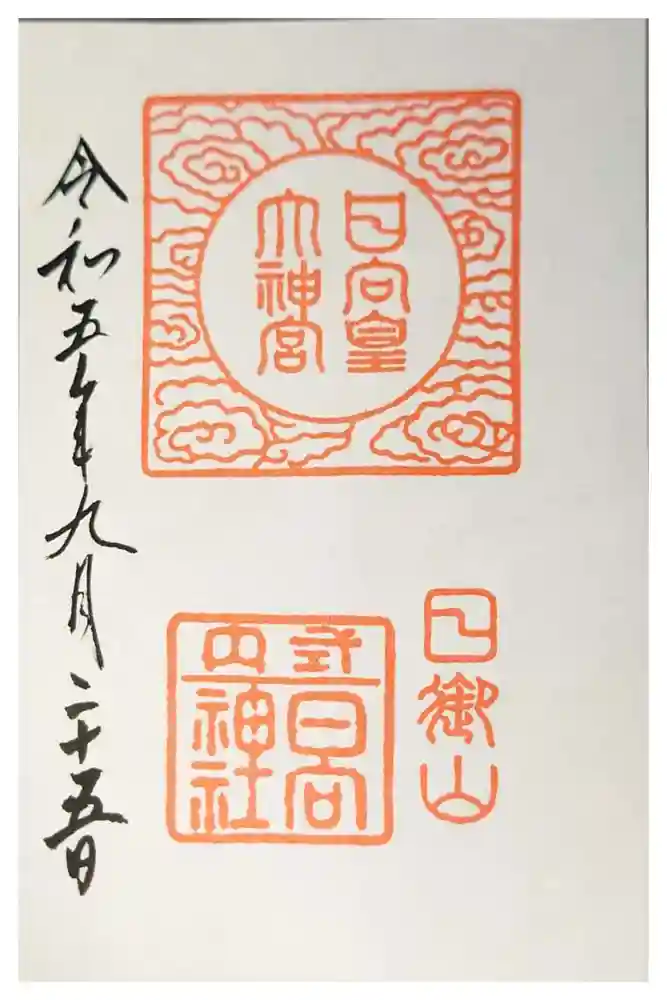 日向皇
大神宮
日御山
式内
日向
神社
令和五年九月二十五日